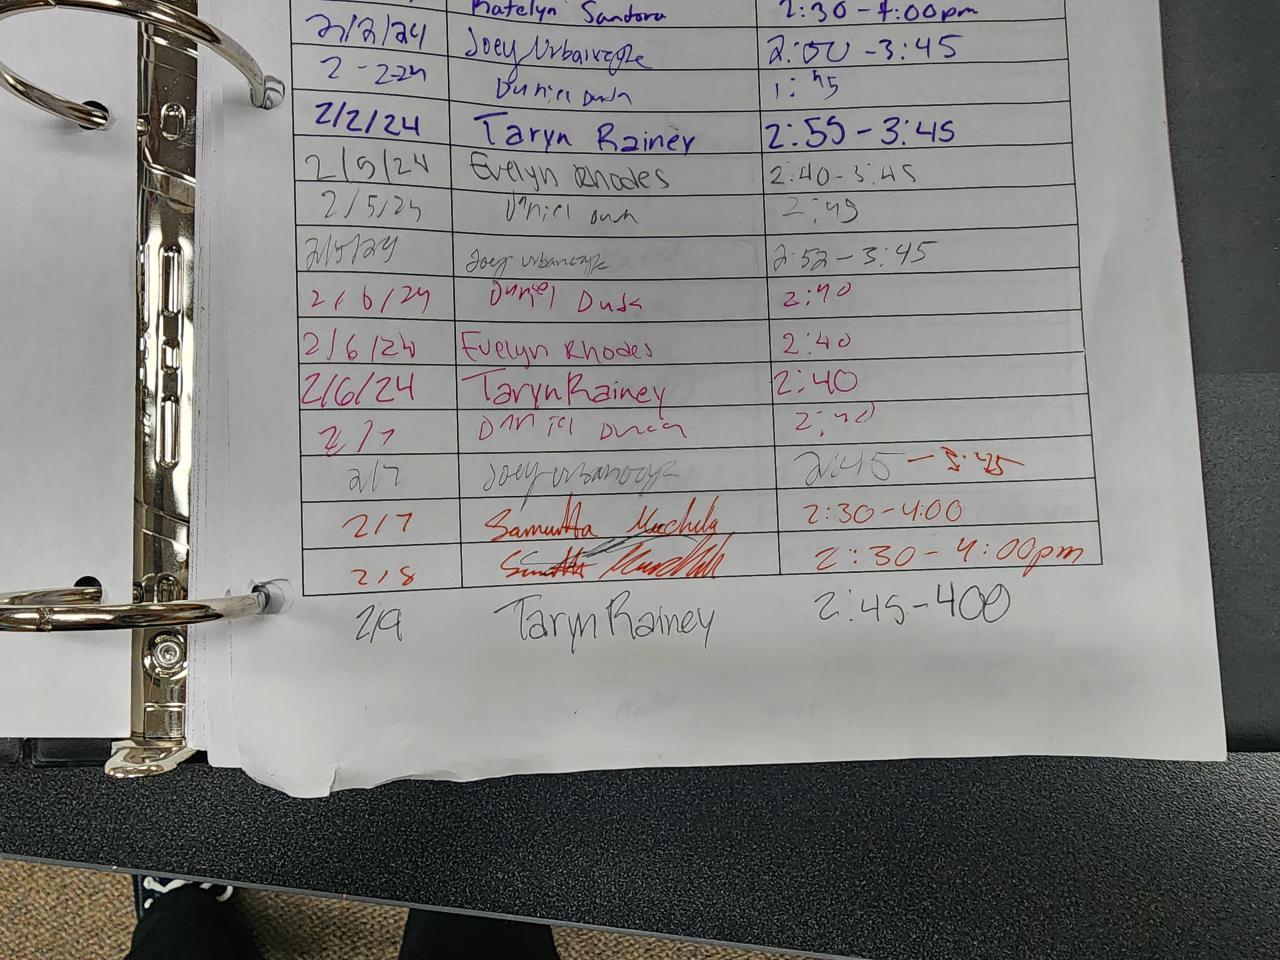 Katelyn Santora 2:30-4:00pm
2/2/24 Joey 2:00-3:45
2-2-24 Daniel Dusk 1:45
2/2/24 Taryn Rainey 2:55-3:45
2/5/24 Evelyn Rhodes 2:40-3:45
2/5/24 Daniel Dusk 2:45
2/5/24 Joey Urbanczyk 2:52-3:45
2/6/24 Daniel Dusk 2:40
2/6/24 Evelyn Rhodes 2:40
2/6/24 Taryn Rainey 2:40
2/7 Daniel 2:40
2/7 Joey 2:45-3:45
2/7 Samantha 2:30-4:00
2/8 2:30-4:00pm
2/9 Taryn Rainey 2:45-400